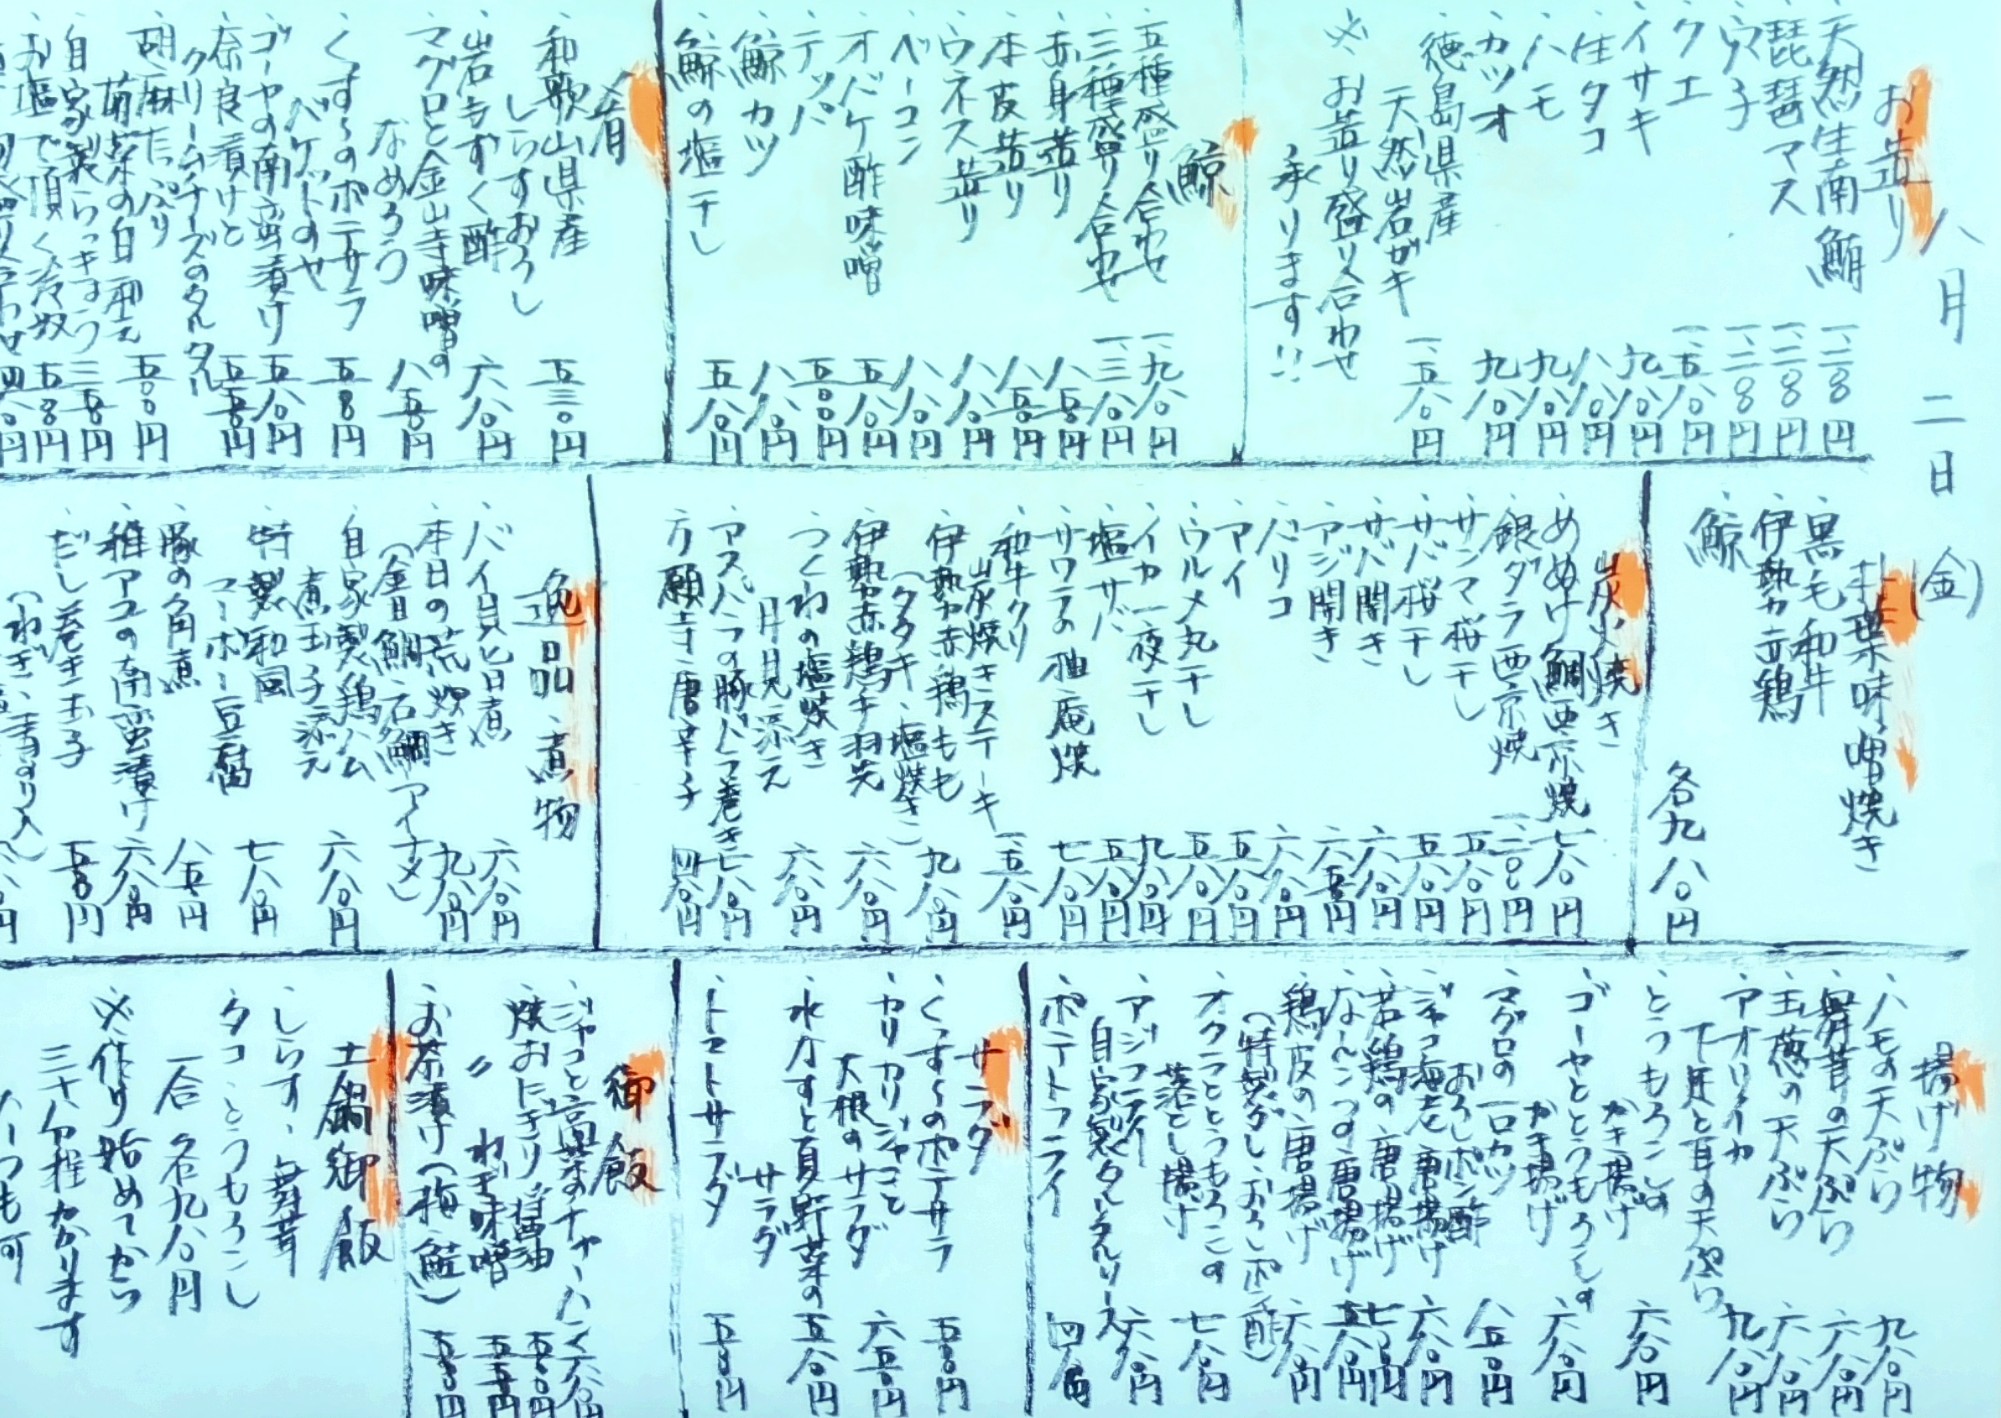 八月二日(金)
お造り
天然生南鮪 一、二八〇円
琵琶マス 一、二八〇円
穴子 一、二八〇円
クエ 一、五八〇円
イサキ 九八〇円
生タコ 八八〇円
ハモ 九八〇円
カツオ 九八〇円
徳島県産
天然岩ガキ 一、五八〇円
※お造り盛り合わせ
承ります!!
鯨
五種盛り合わせ 一、九八〇円
三種盛り合わせ 一、三八〇円
赤身造り 八五〇円
本皮造り 八五〇円
ウネス造り 八八〇円
ベーコン 八八〇円
オバケ酢味噌 五八〇円
テッパ 五〇〇円
鯨カツ 八八〇円
鯨の塩干し 五八〇円
肴
和歌山県産
しらすおろし 五三〇円
岩もずく酢 六八〇円
マグロと金山寺味噌の
なめろう 八五〇円
くすくすのポテサラ
バケットのせ 五八〇円
ゴーヤの南蛮漬け 五八〇円
奈良漬けと
クリームチーズのタルタル 五五〇円
胡麻たっぷり
菊菜の白和え 五〇〇円
自家製らっきょう 三五〇円
お塩で頂く冷奴 五〇〇円
朴葉味噌焼き
黒毛和牛
伊勢赤鶏
鯨
各九八〇円
炭火焼き
めぬけ鯛西京焼 七八〇円
銀ダラ西京焼 一、二八〇円
サンマ桜干し 五八〇円
サバ桜干し 五八〇円
サバ開き 六八〇円
アジ開き 六五〇円
バリコ 六八〇円
アイ 五八〇円
ウルメ丸干し 五八〇円
イカ一夜干し 九八〇円
塩サバ 五八〇円
サワラの柚庵焼 七八〇円
和牛クリ
炭焼きステーキ 一、五八〇円
伊勢赤鶏もも
(タタキ、塩焼き) 九八〇円
伊勢赤鶏手羽先 六八〇円
つくねの塩焼き
月見添え 六八〇円
アスパラの豚バラ巻き 七八〇円
万願寺唐辛子 四八〇円
逸品 煮物
バイ貝旨煮 六八〇円
本日の荒炊き
(金目鯛、石鯛、アイナメ) 九八〇円
自家製鶏ハム
煮玉子添え 六八〇円
特製和風
マーボー豆腐 七八〇円
豚の角煮 八五〇円
稚アユの南蛮漬け 六八〇円
だし巻き玉子 五五〇円
揚げ物
ハモの天ぷら 九八〇円
舞茸の天ぷら 六八〇円
玉葱の天ぷら 六八〇円
アオリイカ
下足と耳の天ぷら 九八〇円
とうもろこしの
かき揚げ 六八〇円
ゴーヤととうもろこしの
かき揚げ 六八〇円
マグロの一口カツ
おろしポン酢 八五〇円
ジャコ海老唐揚げ 六八〇円
若鶏の唐揚げ 七八〇円
なんこつの唐揚げ 五八〇円
鶏皮の唐揚げ
(特製だし、おろしポン酢) 六八〇円
オクラととうもろこしの
落とし揚げ 七八〇円
アジフライ
自家製タルタルソース 六八〇円
ポテトフライ 四八〇円
サラダ
くすくすのポテサラ 五五〇円
カリカリジャコと
大根のサラダ 六五〇円
水ナスと夏野菜の
サラダ 五八〇円
トマトサラダ 五五〇円
御飯
ジャコと高菜のチャーハン 六八〇円
焼おにぎり 醤油 五五〇円
〃 ねぎ味噌 五五〇円
お茶漬け(梅、鮭) 五五〇円
土鍋御飯
しらす、舞茸
タコ、とうもろこし
一合 各九八〇円
※作り始めてから
三十分程かかります